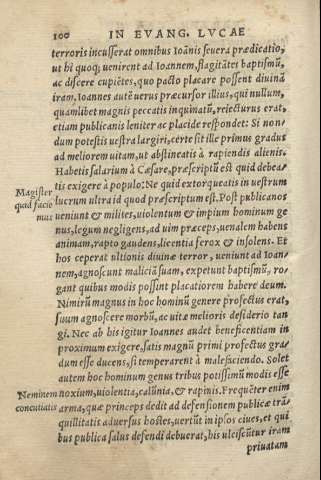 100 IN EVANG. LVCAE
terroris incusserat omnibus Ioānis seuera prædicatio,
ut hi quoq; uenirent ad Ioannem, flagitātes baptismū,
ac discere cupiētes, quo pacto placare possent diuinā
iram, Ioannes autē uerus præcursor illius, qui nullum,
quamlibet magnis peccatis inquinatū, reiecturus erat,
etiam publicanis leniter ac placide respondet: Si non-
dum potestis uestra largiri, certe sit ille primus gradus
ad meliorem uitam, ut abstineatis à rapiendis alienis.
Habetis salarium à Cæsare, præscriptū est quid debea-
tis exigere à populo: Ne quid extorqueatis in uestrum
Magister
quid facie
mus
lucrum ultra id quod præscriptum est. Post publicanos
ueniunt & milites, uiolentum & impium hominum ge
nus, legum negligens, ad uim præceps, uenalem habens
animam, rapto gaudens, licentia ferox & insolens. Et
hos ceperat ultionis diuinæ terror, ueniunt ad Ioan-
nem, agnoscunt maliciā suam, expetunt baptismū, ro-
gant quibus modis possint placatiorem habere deum.
Nimirū magnus in hoc hominū genere profectus erat,
suum agnoscere morbū, ac uitæ melioris desiderio tan
gi. Nec ab his igitur Ioannes audet beneficentiam in
proximum exigere, satis magnū primi profectus gra-
dum esse ducens, si temperarent à maleficiendo. Solet
autem hoc hominum genus tribus potissimū modis esse
Neminem
concutiatis
noxium, uiolentia, calūnia, & rapinis. Frequēter enim
arma, quæ princeps dedit ad defensionem publicæ trā-
quillitatis aduersus hostes, uertūt in ipsos ciues, et qui
bus publica salus defendi debuerat, his ulciscūtur iram
priuatam